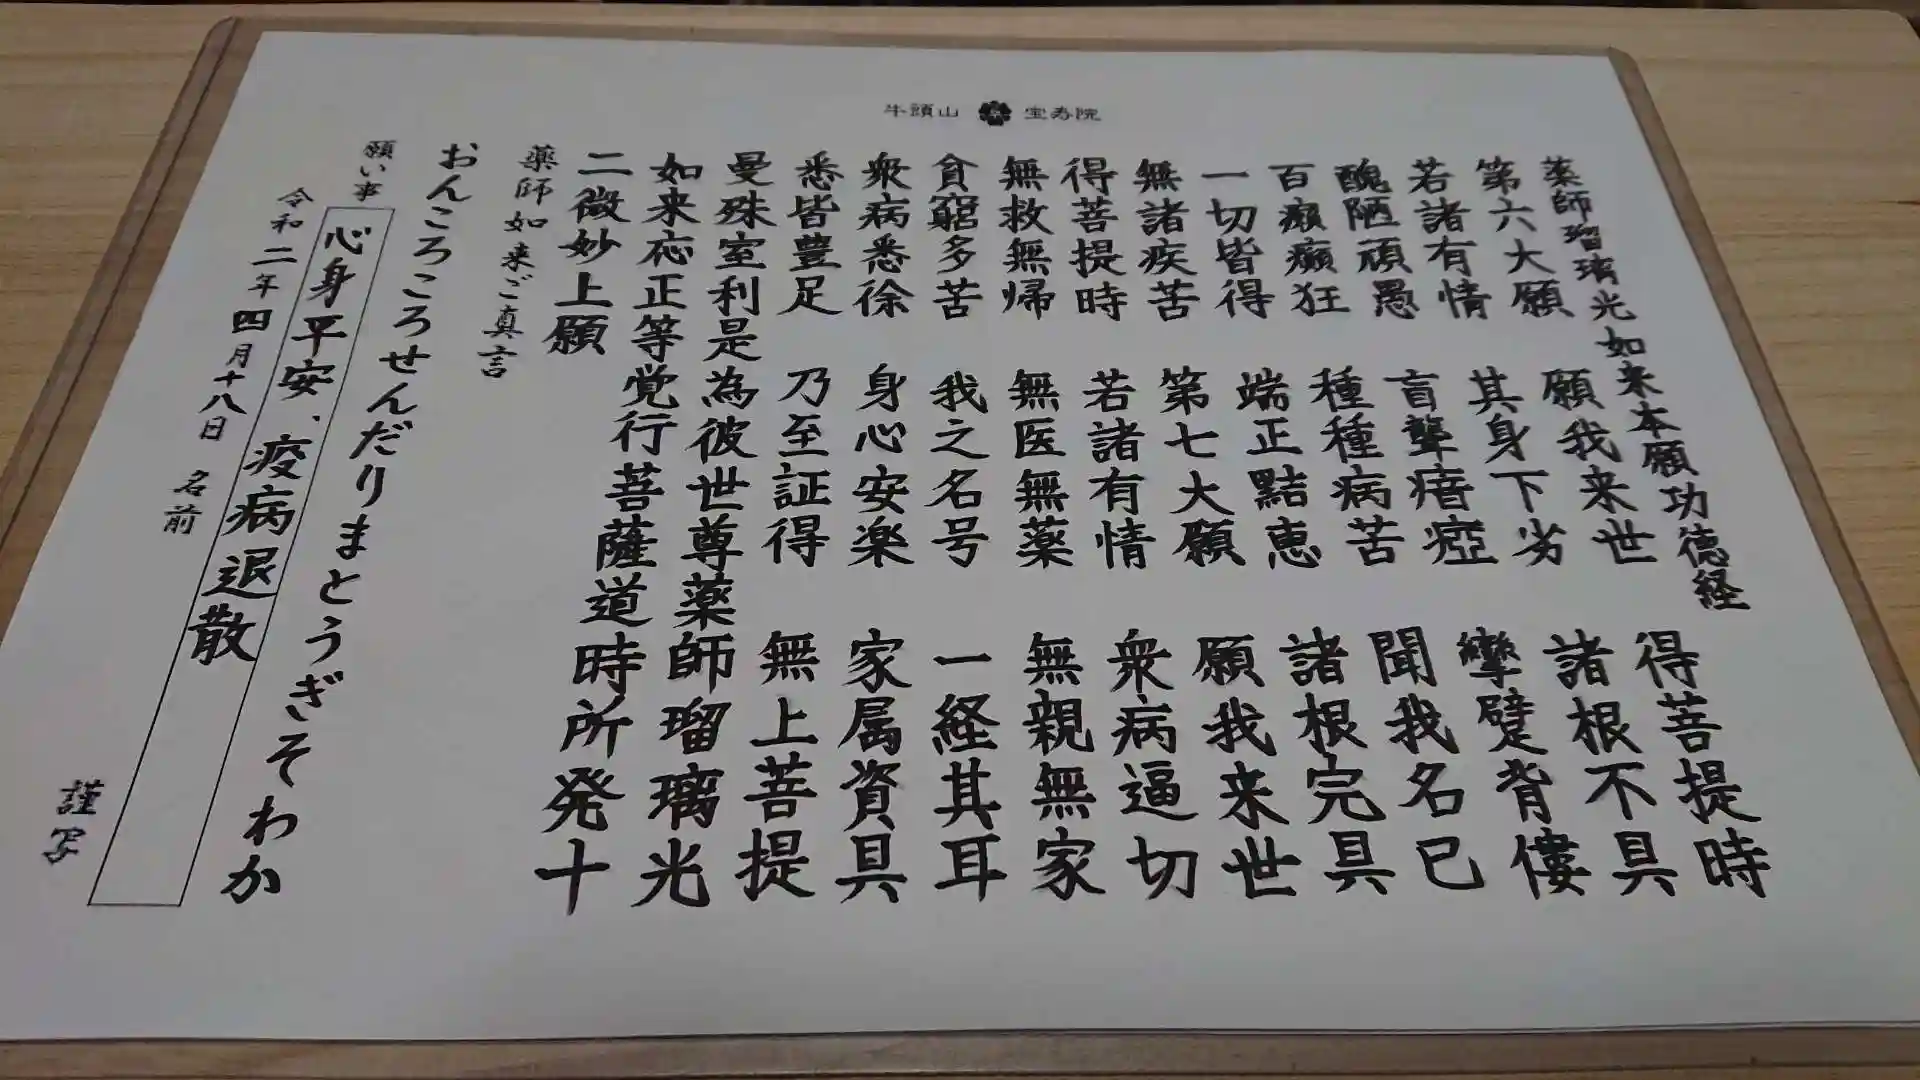 牛頭山 宝寿院
薬師瑠璃光如来本願功徳経
第六大願 願我来世 得菩提時
若諸有情 其身下劣 諸根不具
醜陋頑愚 盲聾瘖瘂 攣躄背僂
百癩癲狂 種種病苦 聞我名已
一切皆得 端正黠恵 諸根完具
無諸疾苦 第七大願 願我来世
得菩提時 若諸有情 衆病逼切
無救無帰 無医無薬 無親無家
貧窮多苦 我之名号 一経其耳
衆病悉徐 身心安楽 家属資具
悉皆豊足 乃至証得 無上菩提
曼殊室利是為彼世尊薬師瑠璃光
如来応正等覚行菩薩道時所発十
二微妙上願
薬師如来ご真言
おんころころせんだりまとうぎそわか
願い事 心身平安、疫病退散
令和二年四月十八日 名前 謹写